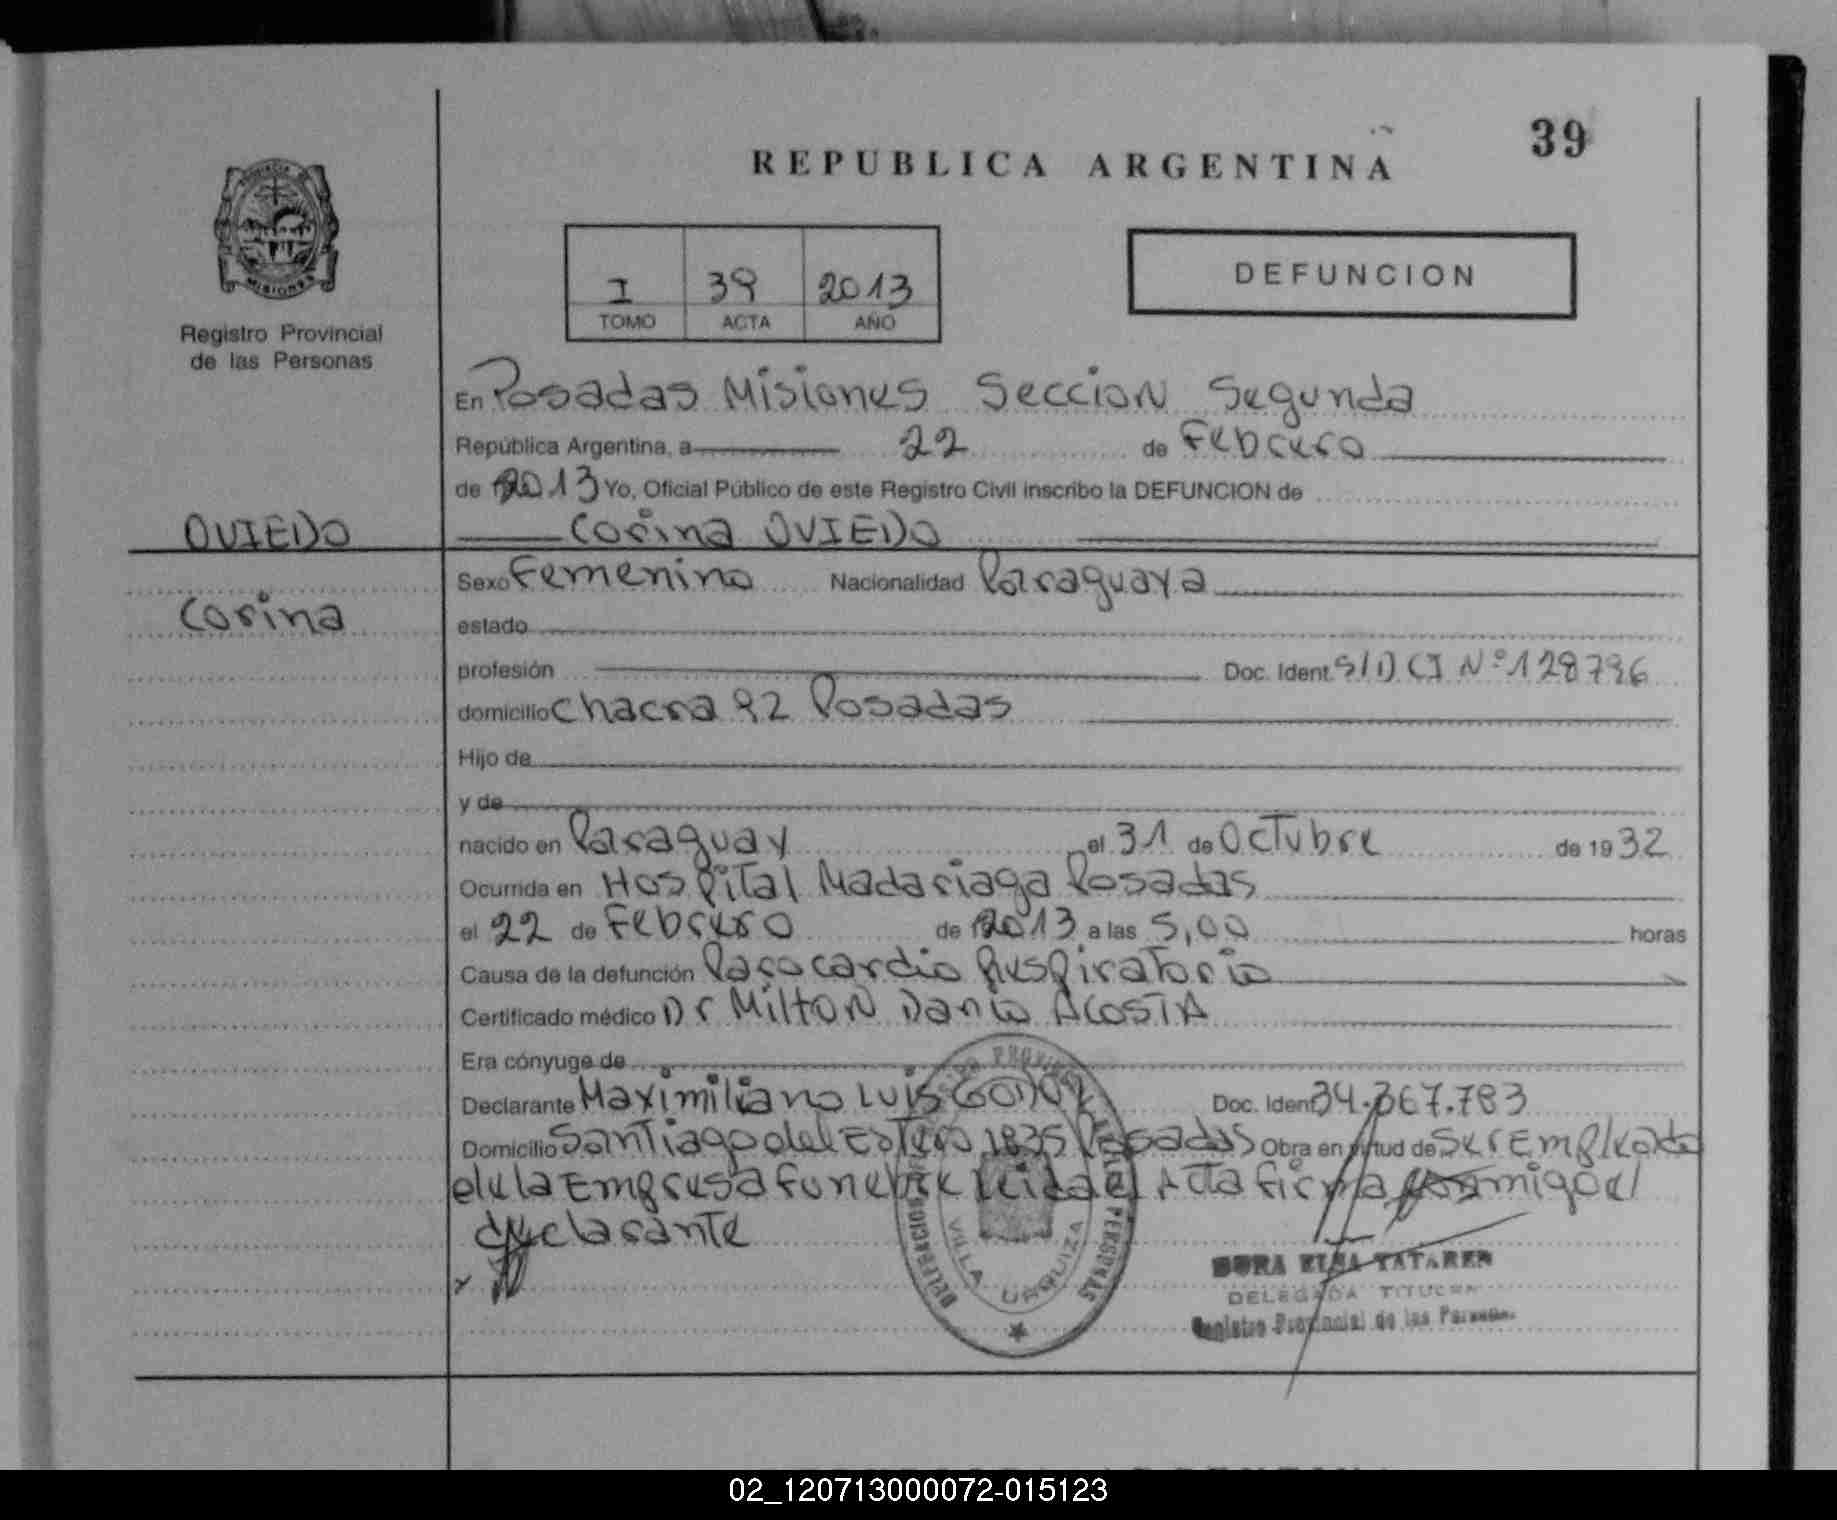 39
REPUBLICA ARGENTINA
I 39 2013
TOMO ACTA AÑO
DEFUNCION
MISIONES
Registro Provincial
de las Personas
En Posadas Misiones Seccion Segunda
República Argentina, a 22 de Febrero
de 2013 Yo, Oficial Público de este Registro Civil inscribo la DEFUNCION de
OVIEDO
Corina OVIEDO
Corina
Sexo Femenino Nacionalidad Paraguaya
estado
profesión Doc. Ident. S/D CI Nº 128796
domicilio Chacra 92 Posadas
Hijo de
y de
nacido en Paraguay el 31 de Octubre de 1932
Ocurrida en Hospital Madariaga Posadas
el 22 de Febrero de 2013 a las 5,00 horas
Causa de la defunción Parocardio Respiratorio
Certificado médico Dr Milton Danio ACOSTA
Era cónyuge de
Declarante Maximiliano Luis GODOY Doc. Ident 34.367.783
Domicilio Santiago del Estero 1835 Posadas Obra en virtud de Ser Empleado
de la Empresa Funebre Leida el Acta firma conmigo el
declarante
DELEGACION VILLA URQUIZA
PERSONAS
DORA ELSA TATAREN
DELEGADA TITULAR
Registro Provincial de las Personas
02_120713000072-015123